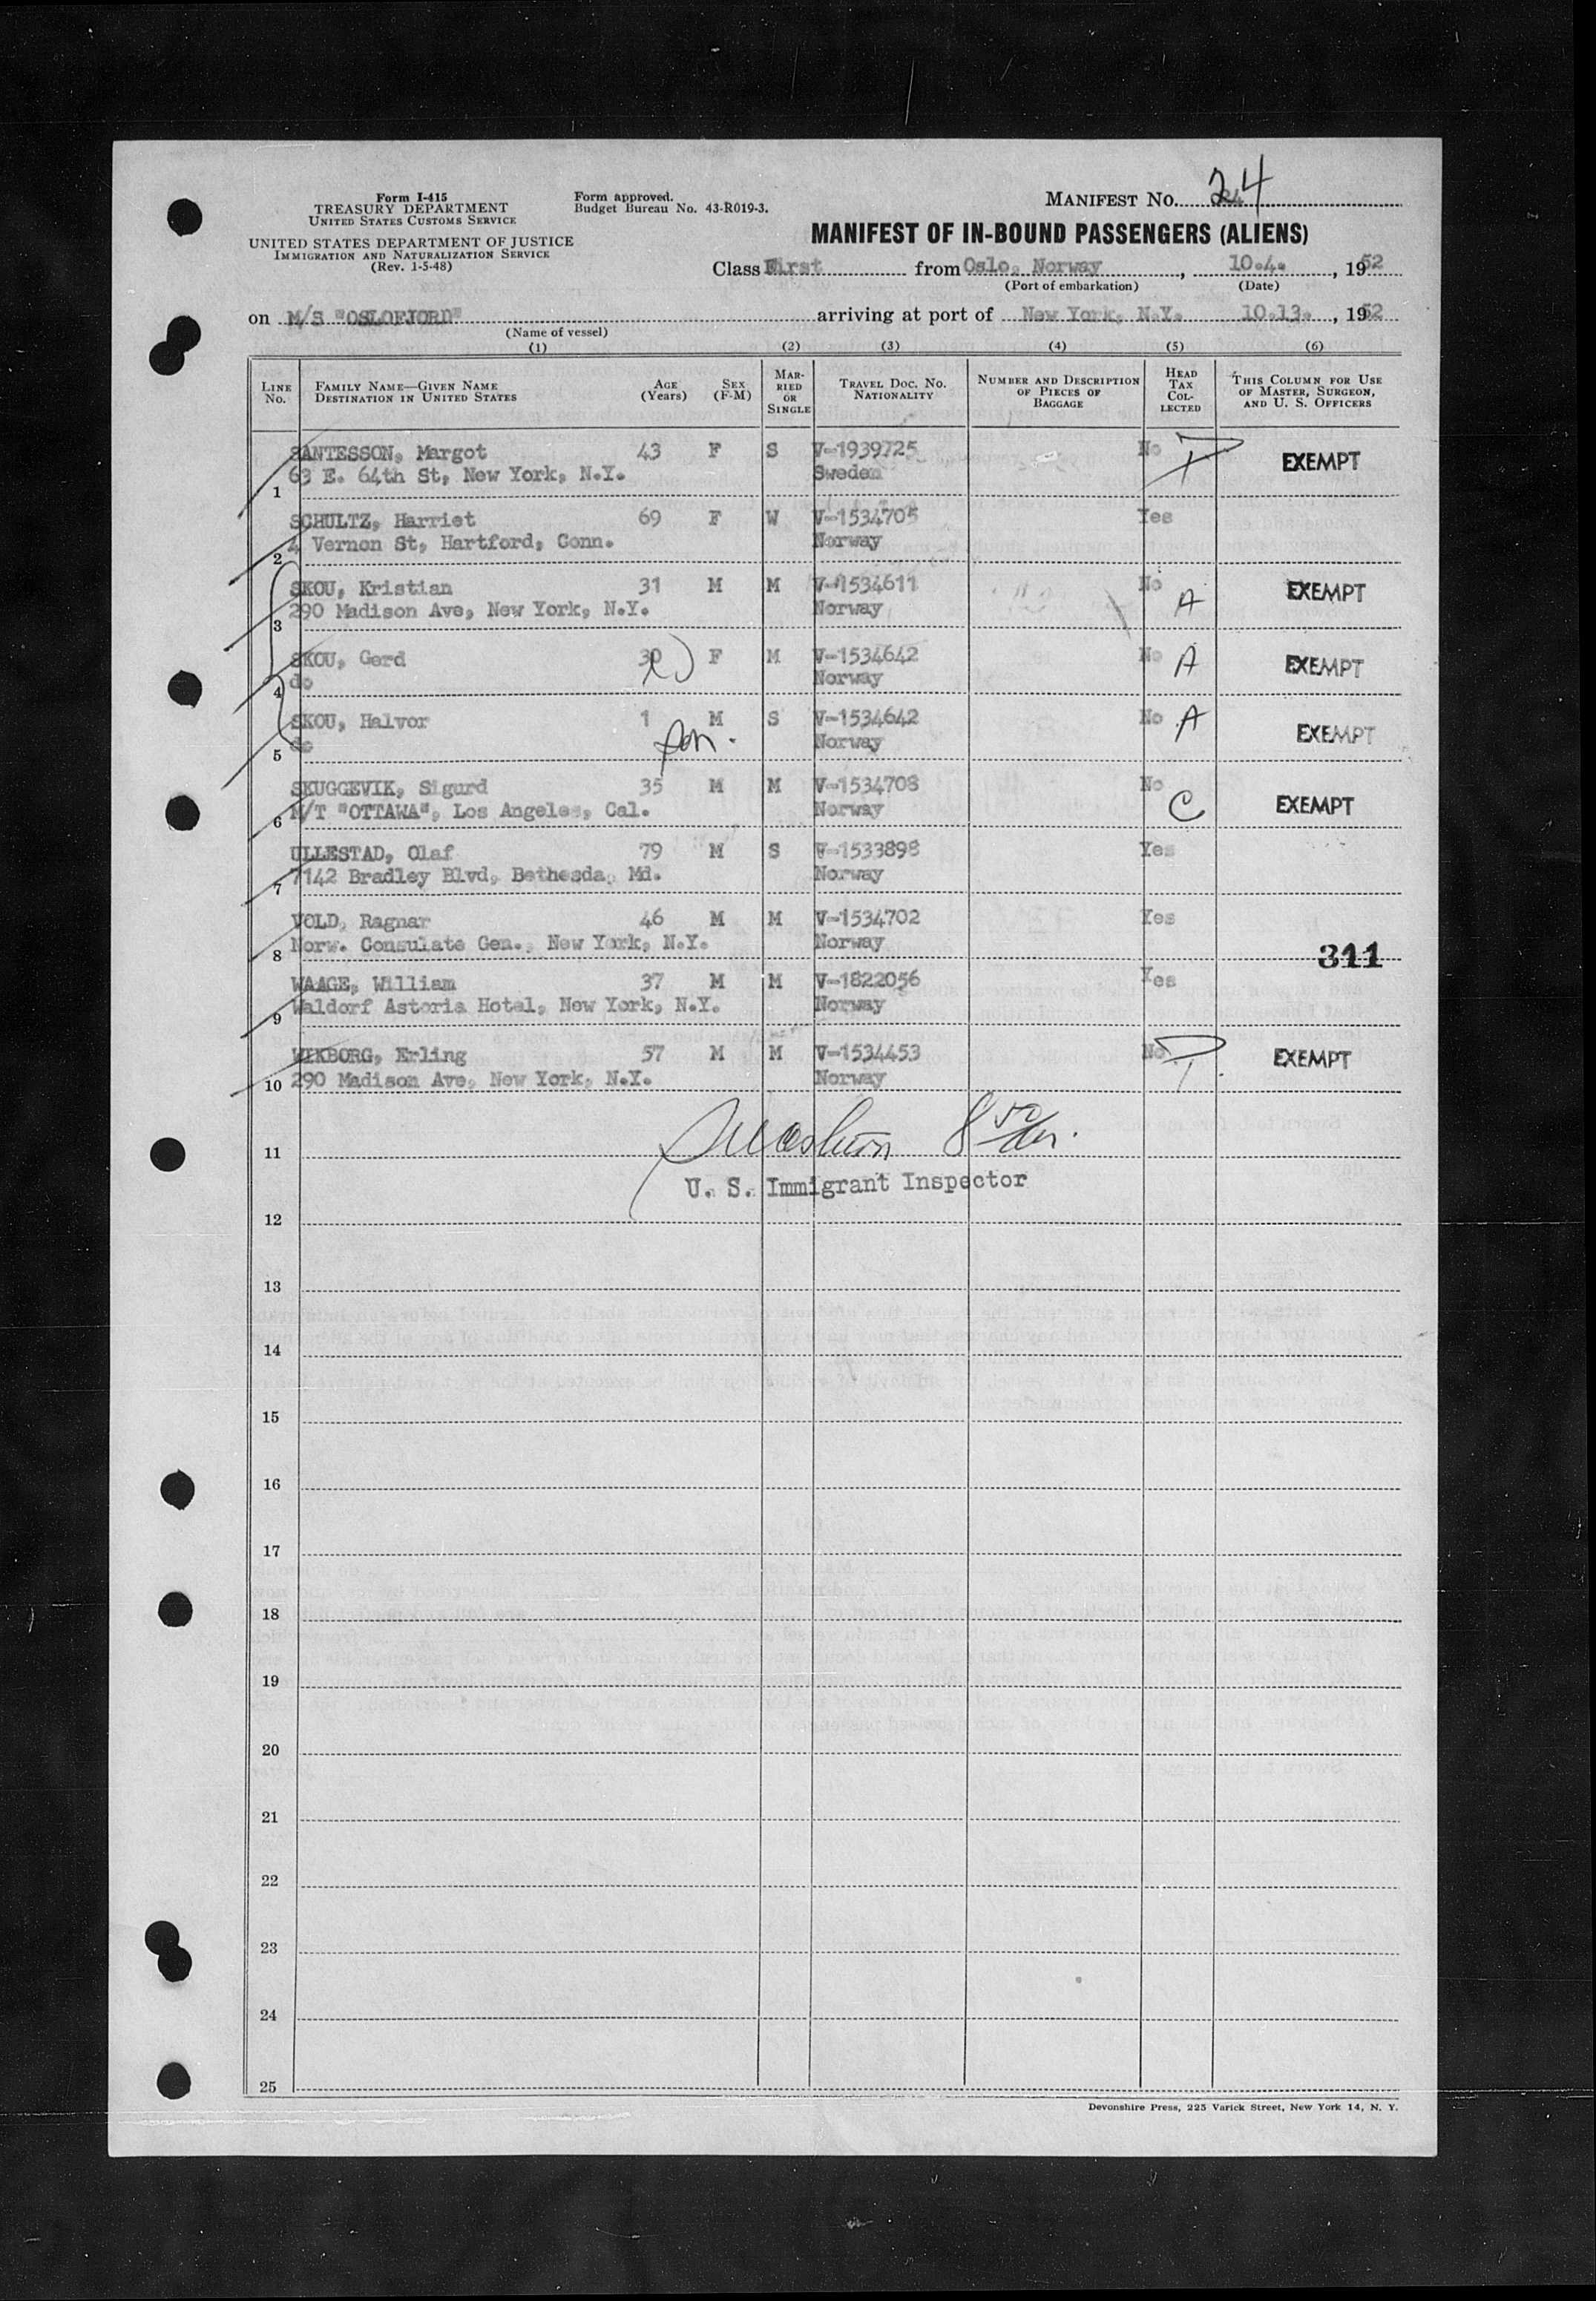 Form I-415
TREASURY DEPARTMENT
UNITED STATES CUSTOMS SERVICE
UNITED STATES DEPARTMENT OF JUSTICE
IMMIGRATION AND NATURALIZATION SERVICE
(Rev. 1-5-48)
Form approved.
Budget Bureau No. 43-R019-3.
MANIFEST NO. 24
MANIFEST OF IN-BOUND PASSENGERS (ALIENS)
Class First from Oslo, Norway, 10.4., 1952
(Port of embarkation) (Date)
on M/S "OSLOFJORD" arriving at port of New York, N.Y. 10.13., 1952
(Name of vessel)
(1) (2) (3) (4) (5) (6)
LINE No. FAMILY NAME—GIVEN NAME DESTINATION IN UNITED STATES AGE (Years) SEX (F-M) MARRIED OR SINGLE TRAVEL DOC. NO. NATIONALITY NUMBER AND DESCRIPTION OF PIECES OF BAGGAGE HEAD TAX COLLECTED THIS COLUMN FOR USE OF MASTER, SURGEON, AND U. S. OFFICERS
SANTESSON, Margot 43 F S V-1939725 No T EXEMPT
1 63 E. 64th St, New York, N.Y. Sweden
SCHULTZ, Harriet 69 F W V-1534705 Yes
2 4 Vernon St, Hartford, Conn. Norway
SKOU, Kristian 31 M M V-1534611 No A EXEMPT
3 290 Madison Ave, New York, N.Y. Norway
SKOU, Gerd 30 F M V-1534642 No A EXEMPT
4 do Norway
SKOU, Halvor 1 M S V-1534642 No A EXEMPT
5 do son. Norway
SKUGGEVIK, Sigurd 35 M M V-1534708 No C EXEMPT
6 M/T "OTTAWA", Los Angeles, Cal. Norway
ULLESTAD, Olaf 79 M S V-1533898 Yes
7 7142 Bradley Blvd, Bethesda, Md. Norway
VOLD, Ragnar 46 M M V-1534702 Yes
8 Norw. Consulate Gen., New York, N.Y. Norway 311
WAAGE, William 37 M M V-1822056 Yes
9 Waldorf Astoria Hotel, New York, N.Y. Norway
WIKBORG, Erling 57 M M V-1534453 No T. EXEMPT
10 290 Madison Ave, New York, N.Y. Norway
11
U. S. Immigrant Inspector
12
13
14
15
16
17
18
19
20
21
22
23
24
25
Devonshire Press, 225 Varick Street, New York 14, N. Y.